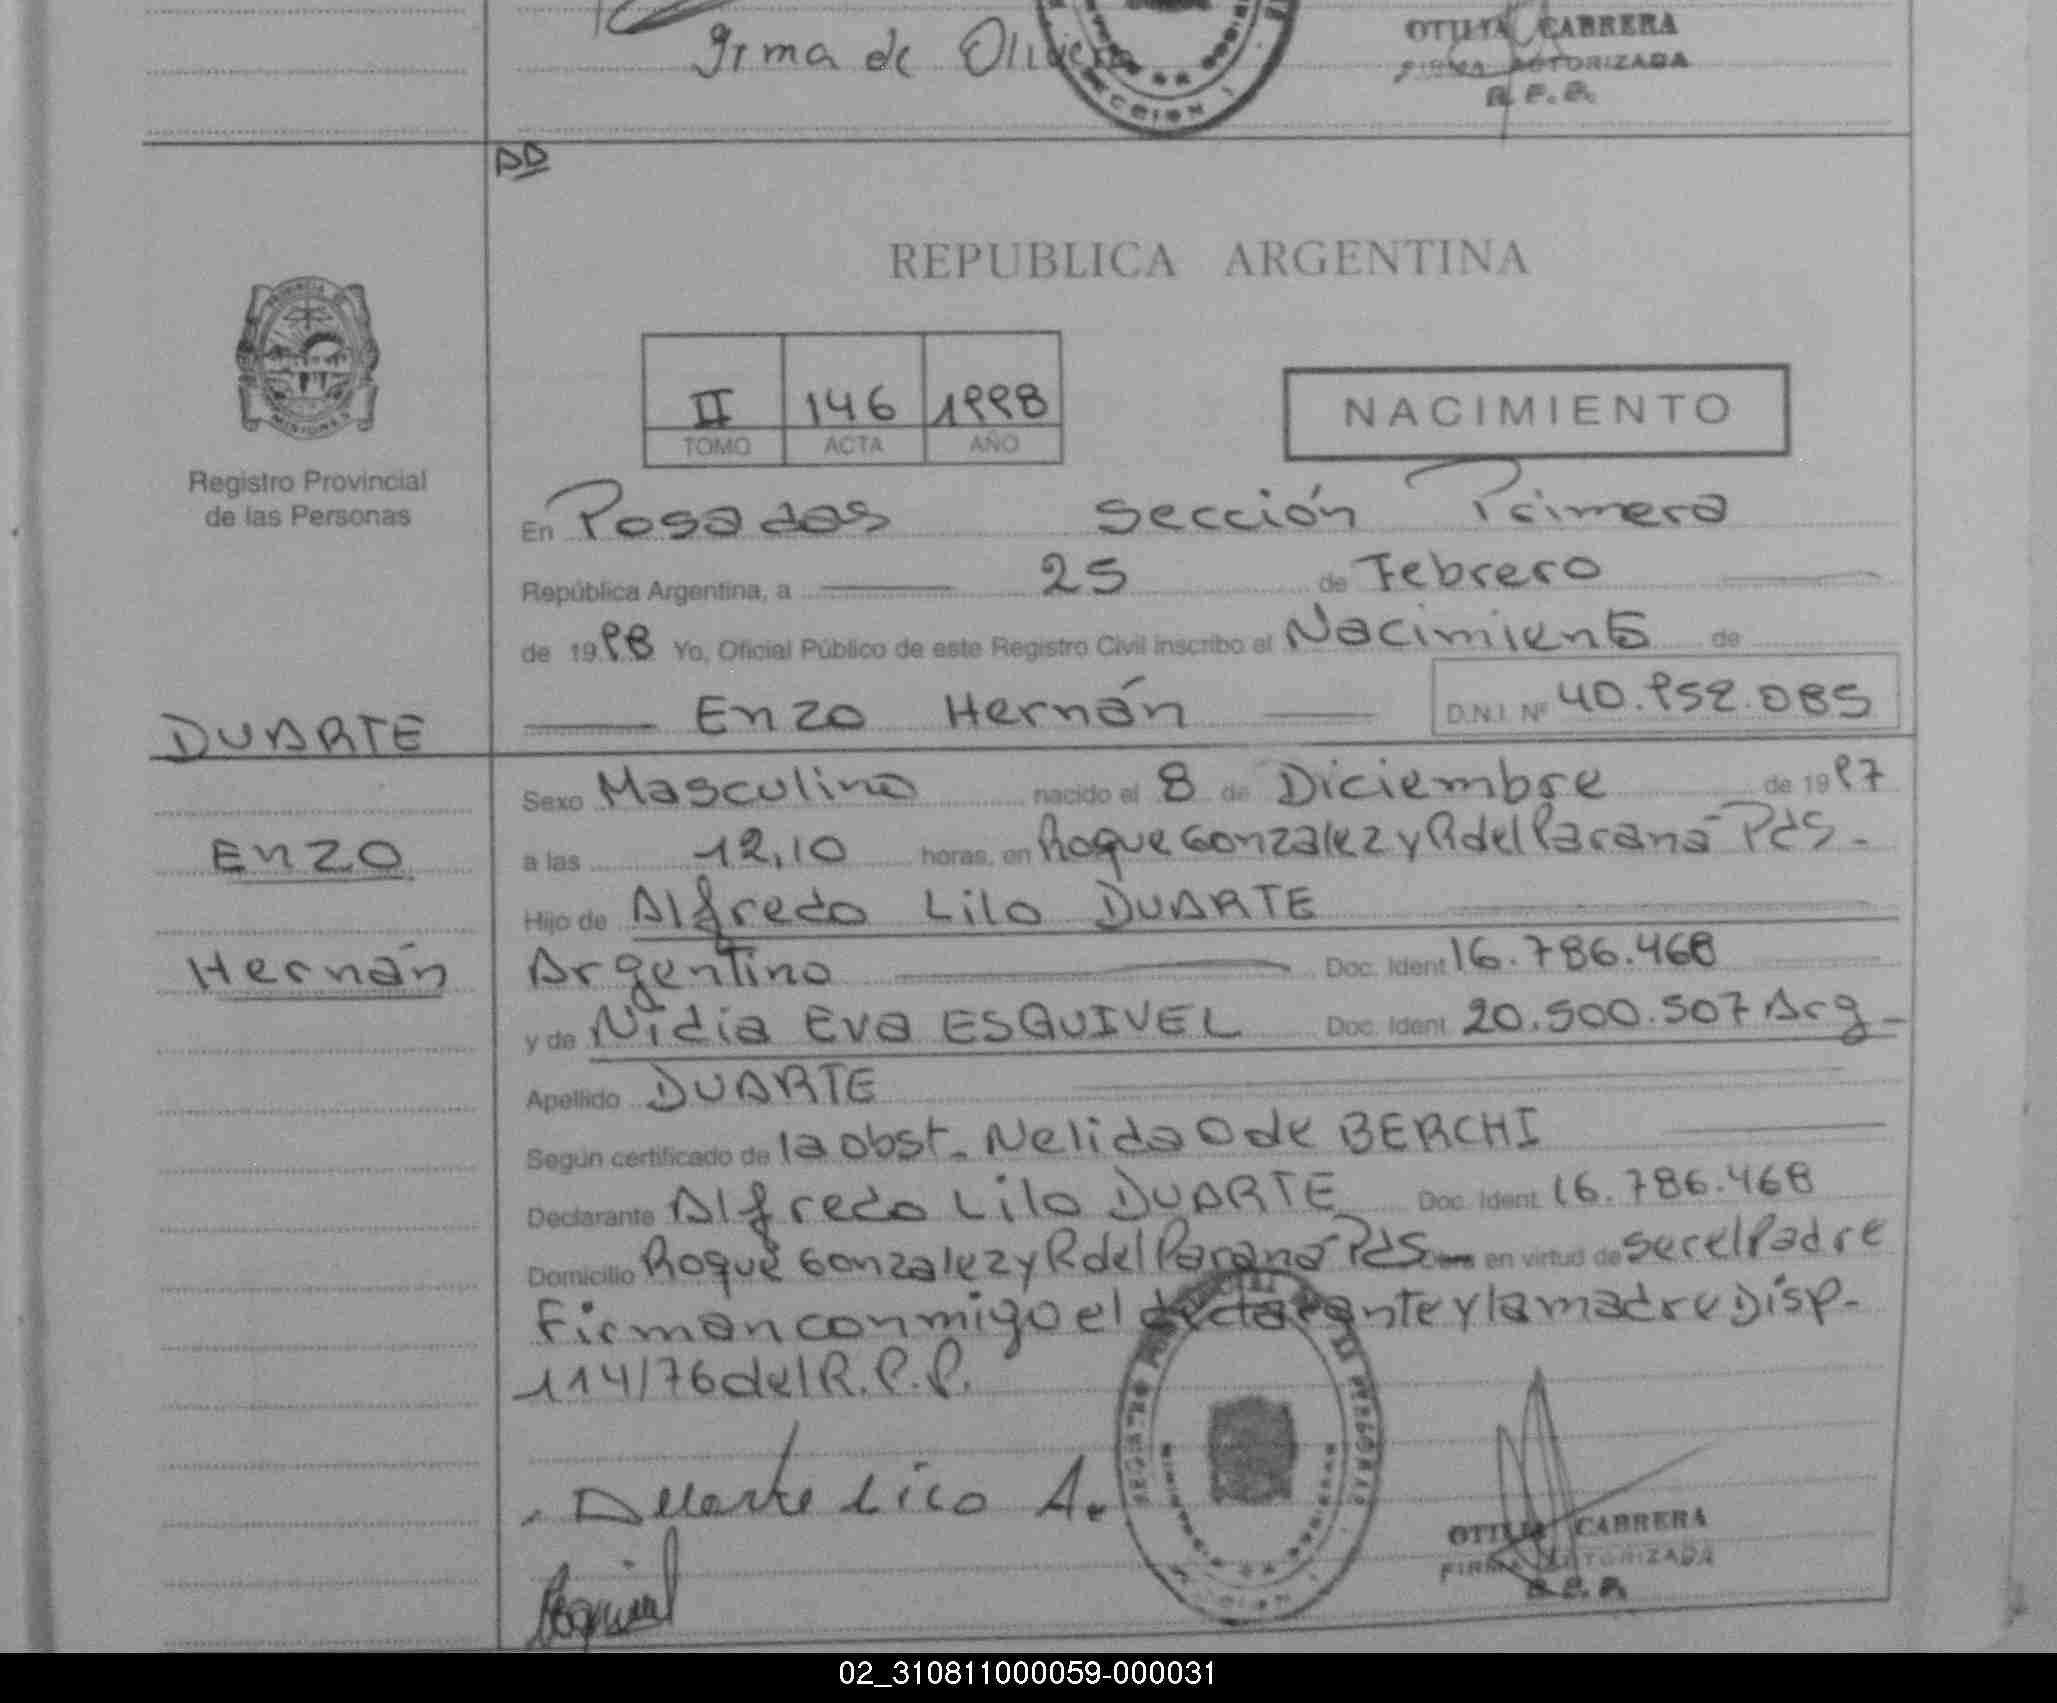 Irma de Olivera
OTILIA CABRERA
FIRMA AUTORIZADA
R. P. P.
DD
REPUBLICA ARGENTINA
II 146 1998
TOMO ACTA AÑO
NACIMIENTO
MISIONES
Registro Provincial
de las Personas
En Posadas sección Primera
República Argentina, a 25 de Febrero
de 1998 Yo, Oficial Público de este Registro Civil inscribo el Nacimiento de
DUARTE
Enzo Hernán D.N.I. Nº 40.952.085
Sexo Masculino nacido el 8 de Diciembre de 1997
Enzo
a las 12,10 horas, en Roque Gonzalez y R del Paraná Pds.
Hijo de Alfredo Lilo DUARTE
Hernán
Argentino Doc. Ident 16.786.468
y de Nidia Eva ESQUIVEL Doc. Ident 20.500.507 Arg
Apellido DUARTE
Según certificado de la obst. Nelida O de BERCHI
Declarante Alfredo Lilo DUARTE Doc. Ident. 16.786.468
Domicilio Roque Gonzalez y R del Paraná Pds en virtud de ser el Padre
Firman conmigo el declarante y la madre Disp.
114/76 del R.P.P.
Duarte Lilo A.
Esquivel
OTILIA CABRERA
FIRMA AUTORIZADA
R. P. P.
02_310811000059-000031